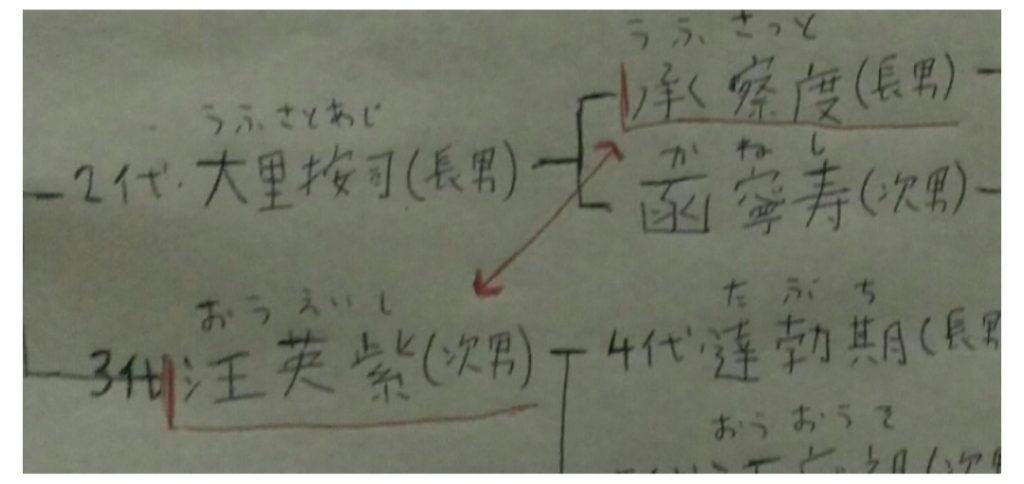 うふさっと
承察度(長男)
うふさとあじ
2代・大里按司(長男)
かねし
函寧寿(次男)
おうえいし
3代汪英紫(次男)
たぶち
4代達勃期(長男
おうおうそ